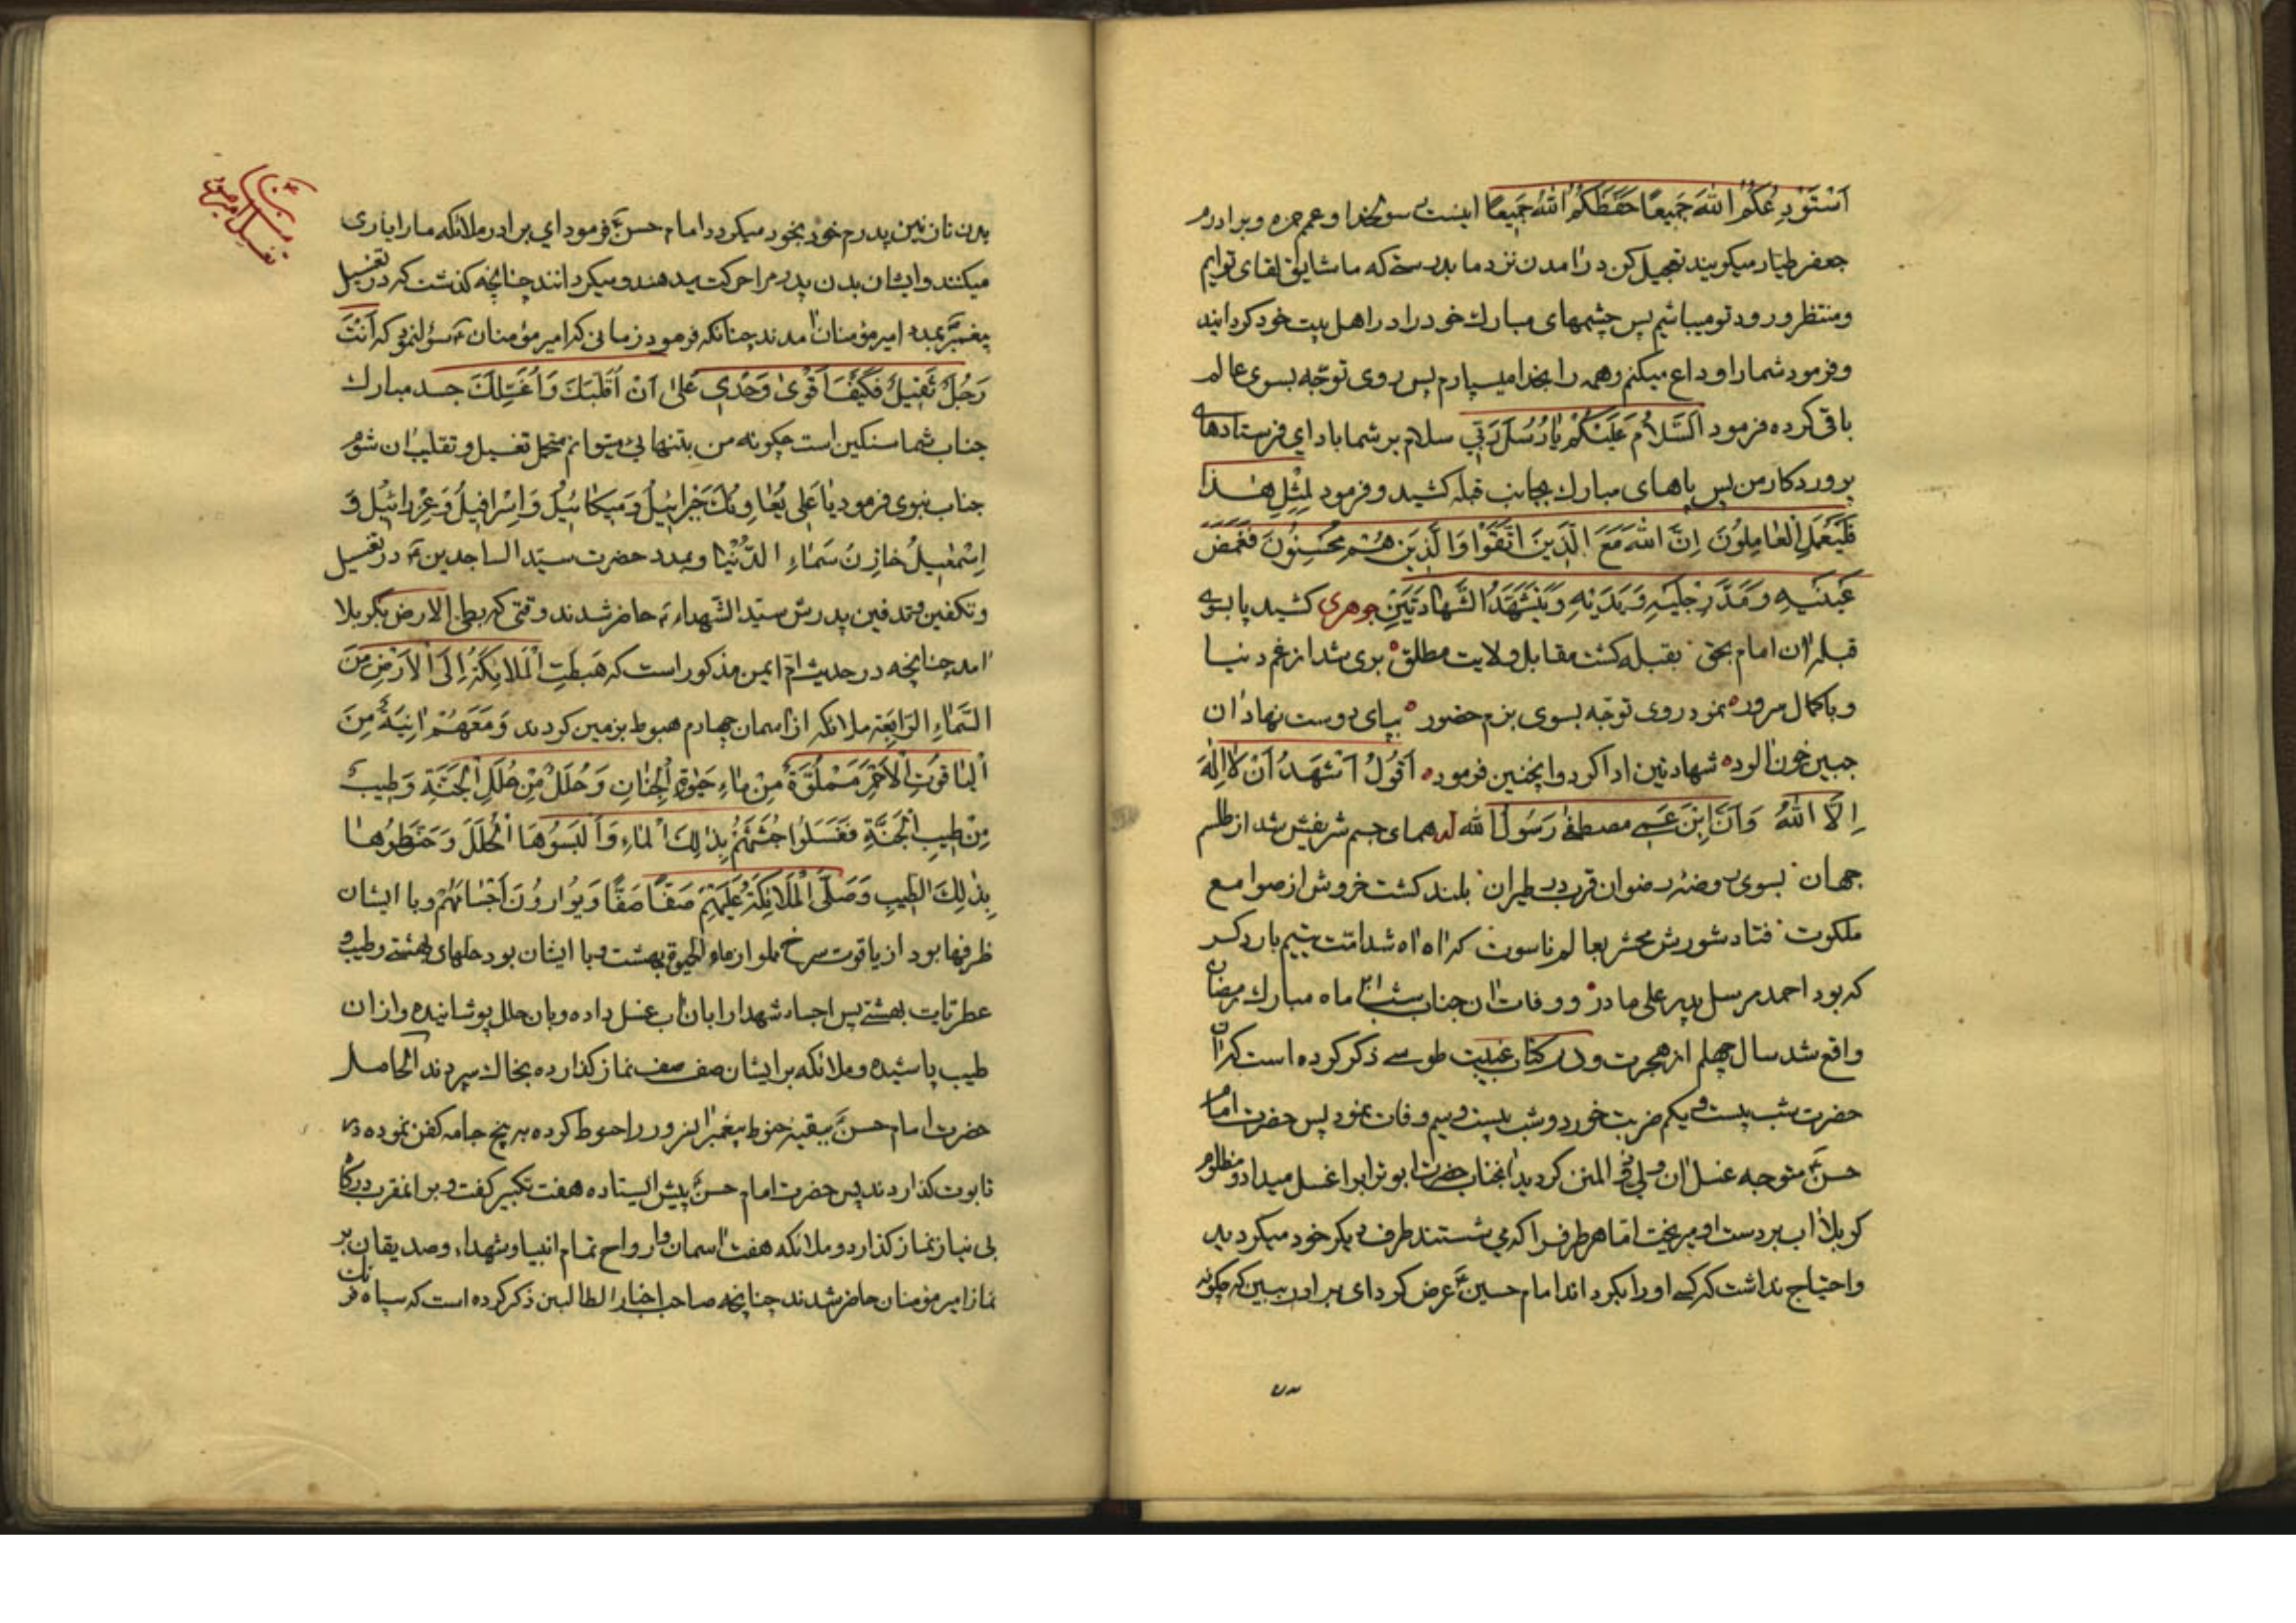 اَسْتَوْدِعُكُمُ اللّٰهَ جَمیعًا حَفَظَكُمُ اللّٰهُ جَمیعًا اینست رسولخدا و عمم حمزه و برادرم
جعفر طیار میکویند تعجیل کن در امدن نزد ما بدرستیکه ما شایق لقای توایم
و منتظر ورود تو میباشیم پس چشمهای مبارك خود را در اهل بیت خود کردانید
و فرمود شما را وداع میکنم و همه را بخدا میسپارم پس روی توجّه بسوی عالم
باقی کرده فرمود اَلسَّلاٰمُ عَلَیْكُمْ یٰا رُسُلَ رَبّی سلام بر شما باد ای فرستادهای
پروردکار من پس پاهای مبارك بجانب قبله کشید و فرمود لِمِثْلِ هٰذا
فَلْیَعْمَلِ الْعٰامِلُونَ اِنَّ اللّٰهَ مَعَ الَّذینَ اتَّقَوْا وَالَّذینَ هُمْ مُحْسِنُونَ فَغَمَضَ
عَیْنَیْهِ وَ مَدَّ رِجْلَیْهِ وَ یَدَیْهِ وَ یَتَشَهَّدُ الشَّهٰادَتَیْنِ جوهری کشید پا بسوی
قبله ان امام بحق بقبله کشت مقابل ولایت مطلق بری شد از غم دنیا
و با کمال سرور نمود روی توجّه بسوی بزم حضور بپای دوست نهاد ان
جبین خون الوده شهادتین ادا کرد و اینچنین فرموده اَقُولُ اَشْهَدُ اَنْ لاٰ اِلٰهَ
اِلَّا اللّٰهُ وَ اَنَّ ابْنَ عَمی مصطفی رَسُولُ الله همای جسم شریفش شد از ظلم
جهان بسوی روضهٔ رضوان قرب در طیران بلند کشت خروش از صوامع
ملکوت فتاد شورش محشر بعالم ناسوت که اه اه شد امّت یتیم بار دکر
که بود احمد مرسل پدر علی مادر و وفات ان جناب شب ۲۱ ماه مبارك رمضان
واقع شد سال چهلم از هجرت و در کتاب غیبت طوسی ذکر کرده است که ان
حضرت شب بیست و یکم ضربت خورد و شب بیست و سیم وفات نمود پس حضرت امام
حسن ع متوجه غسل ان ولی ذو المنن کردید انجناب حضرت ابو تراب را غسل میداد و مظلوم
کربلا اب بر دست او میریخت امّا هر طرف را که می شستند طرف دیکر خود میکردید
و احتیاج نداشت که کسی او را بکرداند امام حسین ع عرض کرد ای برادر ببین که چکونه
بدن نازنین پدرم خود بخود میکردد امام حسن ع فرمود ای برادر ملائکه ما را یاری
میکنند و ایشان بدن پدر مرا حرکت میدهند و میکردانند چنانچه کذشت که در تغسیل
پیغمبر بمدد امیر مؤمنان امدند چنانکه فرمود زمانی که امیر مؤمنان ع سؤال نمود که اَنْتَ
رَجُلٌ ثَقیلٌ فَكَیْفَ اَقْوٰی وَحْدی عَلٰی اَنْ اُقَلِّبَكَ وَ اُغَسِّلَكَ جسد مبارك
جناب شما سنکین است چکونه من بتنهایی میتوانم متحمل تغسیل و تقلیب ان شوم
جناب نبوی فرمود یٰا عَلی یُعٰاوِنُكَ جَبْرائیلُ وَ میکائیلُ وَ اِسْرافیلُ وَ عِزْرائیلُ وَ
اِسْمٰعیلُ خٰازِنُ سَمٰاءِ الدُّنْیٰا و بمدد حضرت سیّد الساجدین ع در تغسیل
و تکفین و تدفین پدرش سیّد الشّهداء ع حاضر شدند وقتی که بطی الارض بکربلا
امد چنانچه در حدیث امّ ایمن مذکور است که هَبَطَتِ الْمَلاٰئِكَةُ اِلَی الْاَرْضِ مِنَ
السَّمٰاءِ الرّابِعَةِ ملائکه از اسمان چهارم هبوط بزمین کردند وَ مَعَهُمْ اٰنِیَةٌ مِنَ
الْیٰاقُوتِ الْاَحْمَرِ مَمْلُوَّةٌ مِنْ مٰاءِ حَیٰوةِ الْجِنٰانِ وَ حُلَلٌ مِنْ حُلَلِ الْجَنَّةِ وَ طیبٌ
مِنْ طیبِ الْجَنَّةِ فَغَسَلُوا جُثَّتَهُمْ بِذٰلِكَ الْمٰاءِ وَ اَلْبَسُوهَا الْحُلَلَ وَ حَنَّطُوهٰا
بِذٰلِكَ الطّیبِ وَ صَلَّی الْمَلاٰئِكَةُ عَلَیْهِمْ صَفًّا صَفًّا وَ یُوارُونَ اَجْسٰامَهُمْ و با ایشان
ظرفها بود از یاقوت سرخ مملو از ماء الحیوة بهشت و با ایشان بود حلهای بهشتی و طیب و
عطریات بهشتی پس اجساد شهدا را بان اب غسل داده و بان حلل پوشانیده و از ان
طیب پاشیده و ملائکه بر ایشان صف صف نماز کذارده بخاك سپردند الحاصل
حضرت امام حسن ع ببقیه حنوط پیغمبر انسرور را حنوط کرده به پنج جامه کفن نموده در
تابوت کذاردند پس حضرت امام حسن ع پیش ایستاده هفت تکبیر کفت و بر انمقرب درکاه
بی نیاز نماز کذارد و ملائکه هفت اسمان و ارواح تمام انبیا و شهداء و صدیقان بر
نماز امیر مؤمنان حاضر شدند چنانچه صاحب اخبار الطالبین ذکر کرده است که سپاه